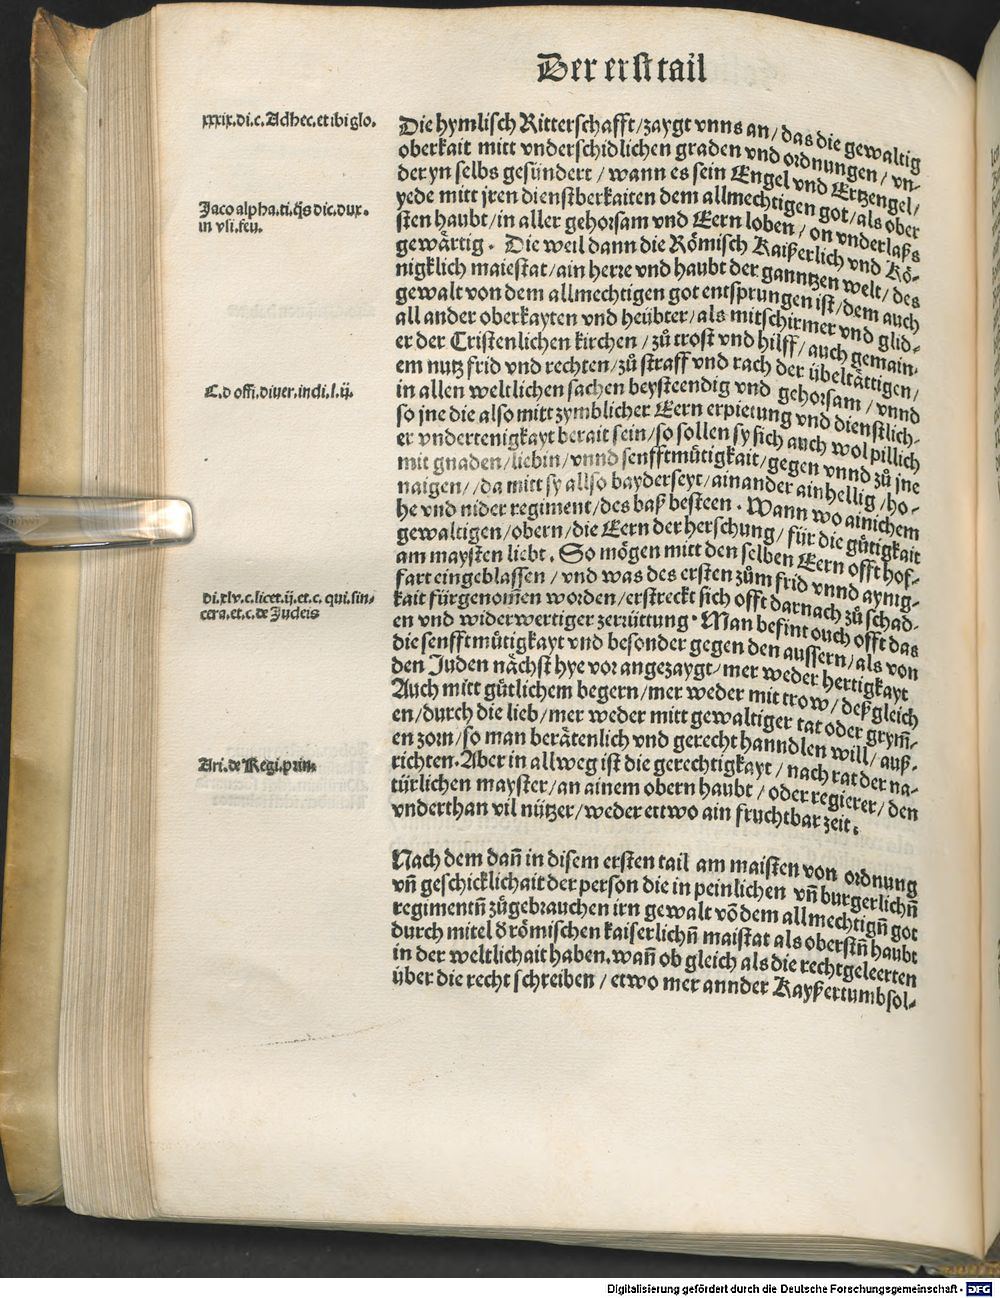 Der erst tail
xxxix.di.c. Adhec.et ibi glo.
Die hymlisch Ritterschafft/zaygt vnns an/das die gewaltig
oberkait mitt vnderschidlichen graden vnd ordnungen/vn-
der yn selbs gesündert/wann es sein Engel vnd Ertzengel/
yede mitt jren dienstberkaiten dem allmechtigen got/als ober
Jaco alpha.ti.q̃s dic.dux.
in vsi.feu.
sten haubt/in aller gehorsam vnd Eern loben/on vnderlaß
gewärtig. Die weil dann die Römisch Kaißerlich vnd Kö-
nigklich maiestat/ain herre vnd haubt der ganntzen welt/des
gewalt von dem allmechtigen got entsprungen ist/dem auch
all ander oberkayten vnd heübter/als mitschirmer vnd glid-
er der Cristenlichen kirchen/zů trost vnd hilff/auch gemain-
em nutz frid vnd rechten/zů straff vnd rach der übeltättigen/
C.d offi.diuer.indi.l.ij.
in allen weltlichen sachen beysteendig vnd gehorsam/vnnd
so jne die also mitt zymblicher Eern erpietung vnd dienstlich-
er vndertenigkayt berait sein/so sollen sy sich auch wol pillich
mit gnaden/liebin/vnnd senfftmůtigkait/gegen vnnd zů jne
naigen//da mitt sy allso bayderseyt/ainander ainhellig/ho-
he vnd nider regiment/des baß besteen. Wann wo ainichem
gewaltigen/obern/die Eern der herschung/für die gůtigkait
am maysten liebt. So mögen mitt den selben Eern offt hof-
fart eingeblassen/vnd was des ersten zům frid vnnd aynig-
di.xlv.c.licet.ij.et.c. qui.sin-
cera.et.c.de Judeis
kait fürgenom̃en worden/erstreckt sich offt darnach zů schad-
en vnd widerwertiger zerrüttung. Man befint ouch offt das
die senfftmůtigkayt vnd besonder gegen den aussern/als von
den Juden nächst hye vor angezaygt/mer weder hertigkayt
Auch mitt gütlichem begern/mer weder mit trow/deßgleich
en/durch die lieb/mer weder mitt gewaltiger tat oder grym̃-
en zorn/so man berätenlich vnd gerecht hanndlen will/auß-
Ari.de Regi.prin.
richten. Aber in allweg ist die gerechtigkayt/nach rat der na-
türlichen mayster/an ainem obern haubt/oder regierer/den
vnderthan vil nützer/weder ettwo ain fruchtbar zeit.
Nach dem dañ in disem ersten tail am maisten von ordnung
vñ geschicklichait der person die in peinlichen vñ burgerlichñ
regimentñ zůgebrauchen irn gewalt võ dem allmechtigñ got
durch mitel d̕ römischen kaiserlichñ maistat als oberstñ haubt
in der weltlichait haben. wañ ob gleich als die rechtgeleerten
über die recht schreiben/etwo mer annder Kayßertumb sol-
Digitalisierung gefördert durch die Deutsche Forschungsgemeinschaft - DFG